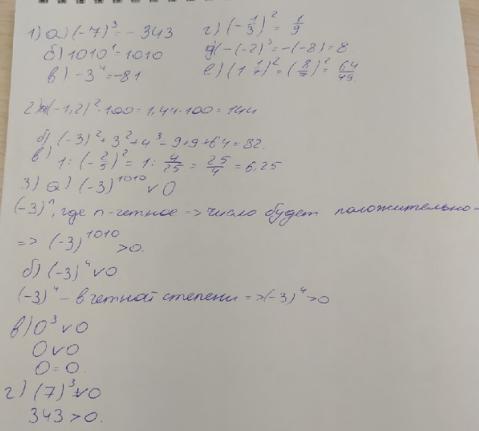 1) а) (-7)³ = -343 г) (-1/3)² = 1/9
б) 1010¹ = 1010 д) -(-2)³ = -(-8) = 8
в) -3⁴ = -81 е) (1 1/7)² = (8/7)² = 64/49
2) а) (-1,2)²·100 = 1,44·100 = 144
б) (-3)² + 3² + 4³ = 9 + 9 + 64 = 82.
в) 1 : (-2/5)² = 1 : 4/25 = 25/4 = 6,25
3) а) (-3)¹⁰¹⁰ v 0
(-3)ⁿ, где n - четное => число будет положительно-
=> (-3)¹⁰¹⁰ > 0.
б) (-3)⁴ v 0
(-3)⁴ - в четной степени => (-3)⁴ > 0
в) 0³ v 0
0 v 0
0 = 0.
г) (7)³ v 0
343 > 0.